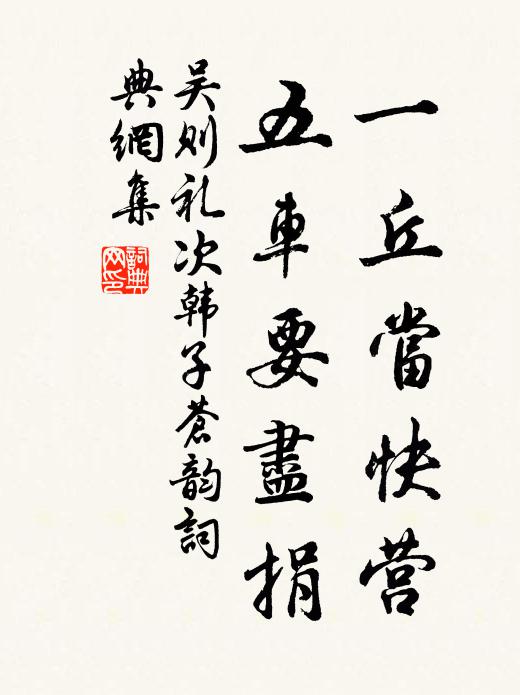 一丘當快营
五車要盡捐
吴则礼次韩子蒼韵詞
典網集
詞典网印